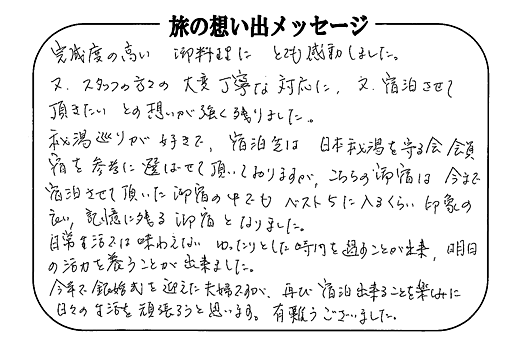 旅の想い出メッセージ
完成度の高い 御料理に とても感動しました。
又、スタッフの方々の 大変丁寧な対応に、又、宿泊させて
頂きたい との想いが強く残りました。
秘湯巡りが好きで、宿泊先は 日本秘湯を守る会 会員
宿を参考に選ばせて頂いておりますが、こちらの御宿は 今まで
宿泊させて頂いた御宿の中でも ベスト5に入るくらい 印象の
良い、記憶に残る御宿となりました。
日常生活では味わえない ゆったりとした時間を過すことが出来、明日
の活力を養うことが出来ました。
今年で銀婚式を迎えた夫婦ですが、再び宿泊出来ることを楽しみに
日々の生活を頑張ろうと思います。有難うございました。